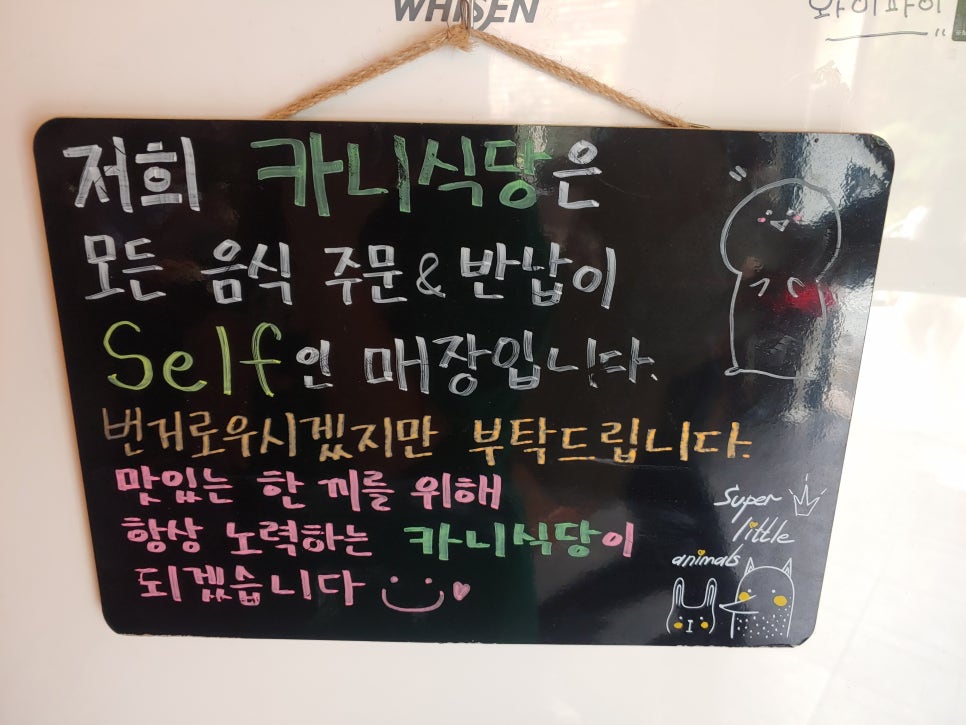 WHISEN
와이파이
저희 카니식당은
모든 음식 주문 & 반납이
Self인 매장입니다.
번거로우시겠지만 부탁드립니다.
맛있는 한 끼를 위해
항상 노력하는 카니식당이
되겠습니다
Super
little
animals